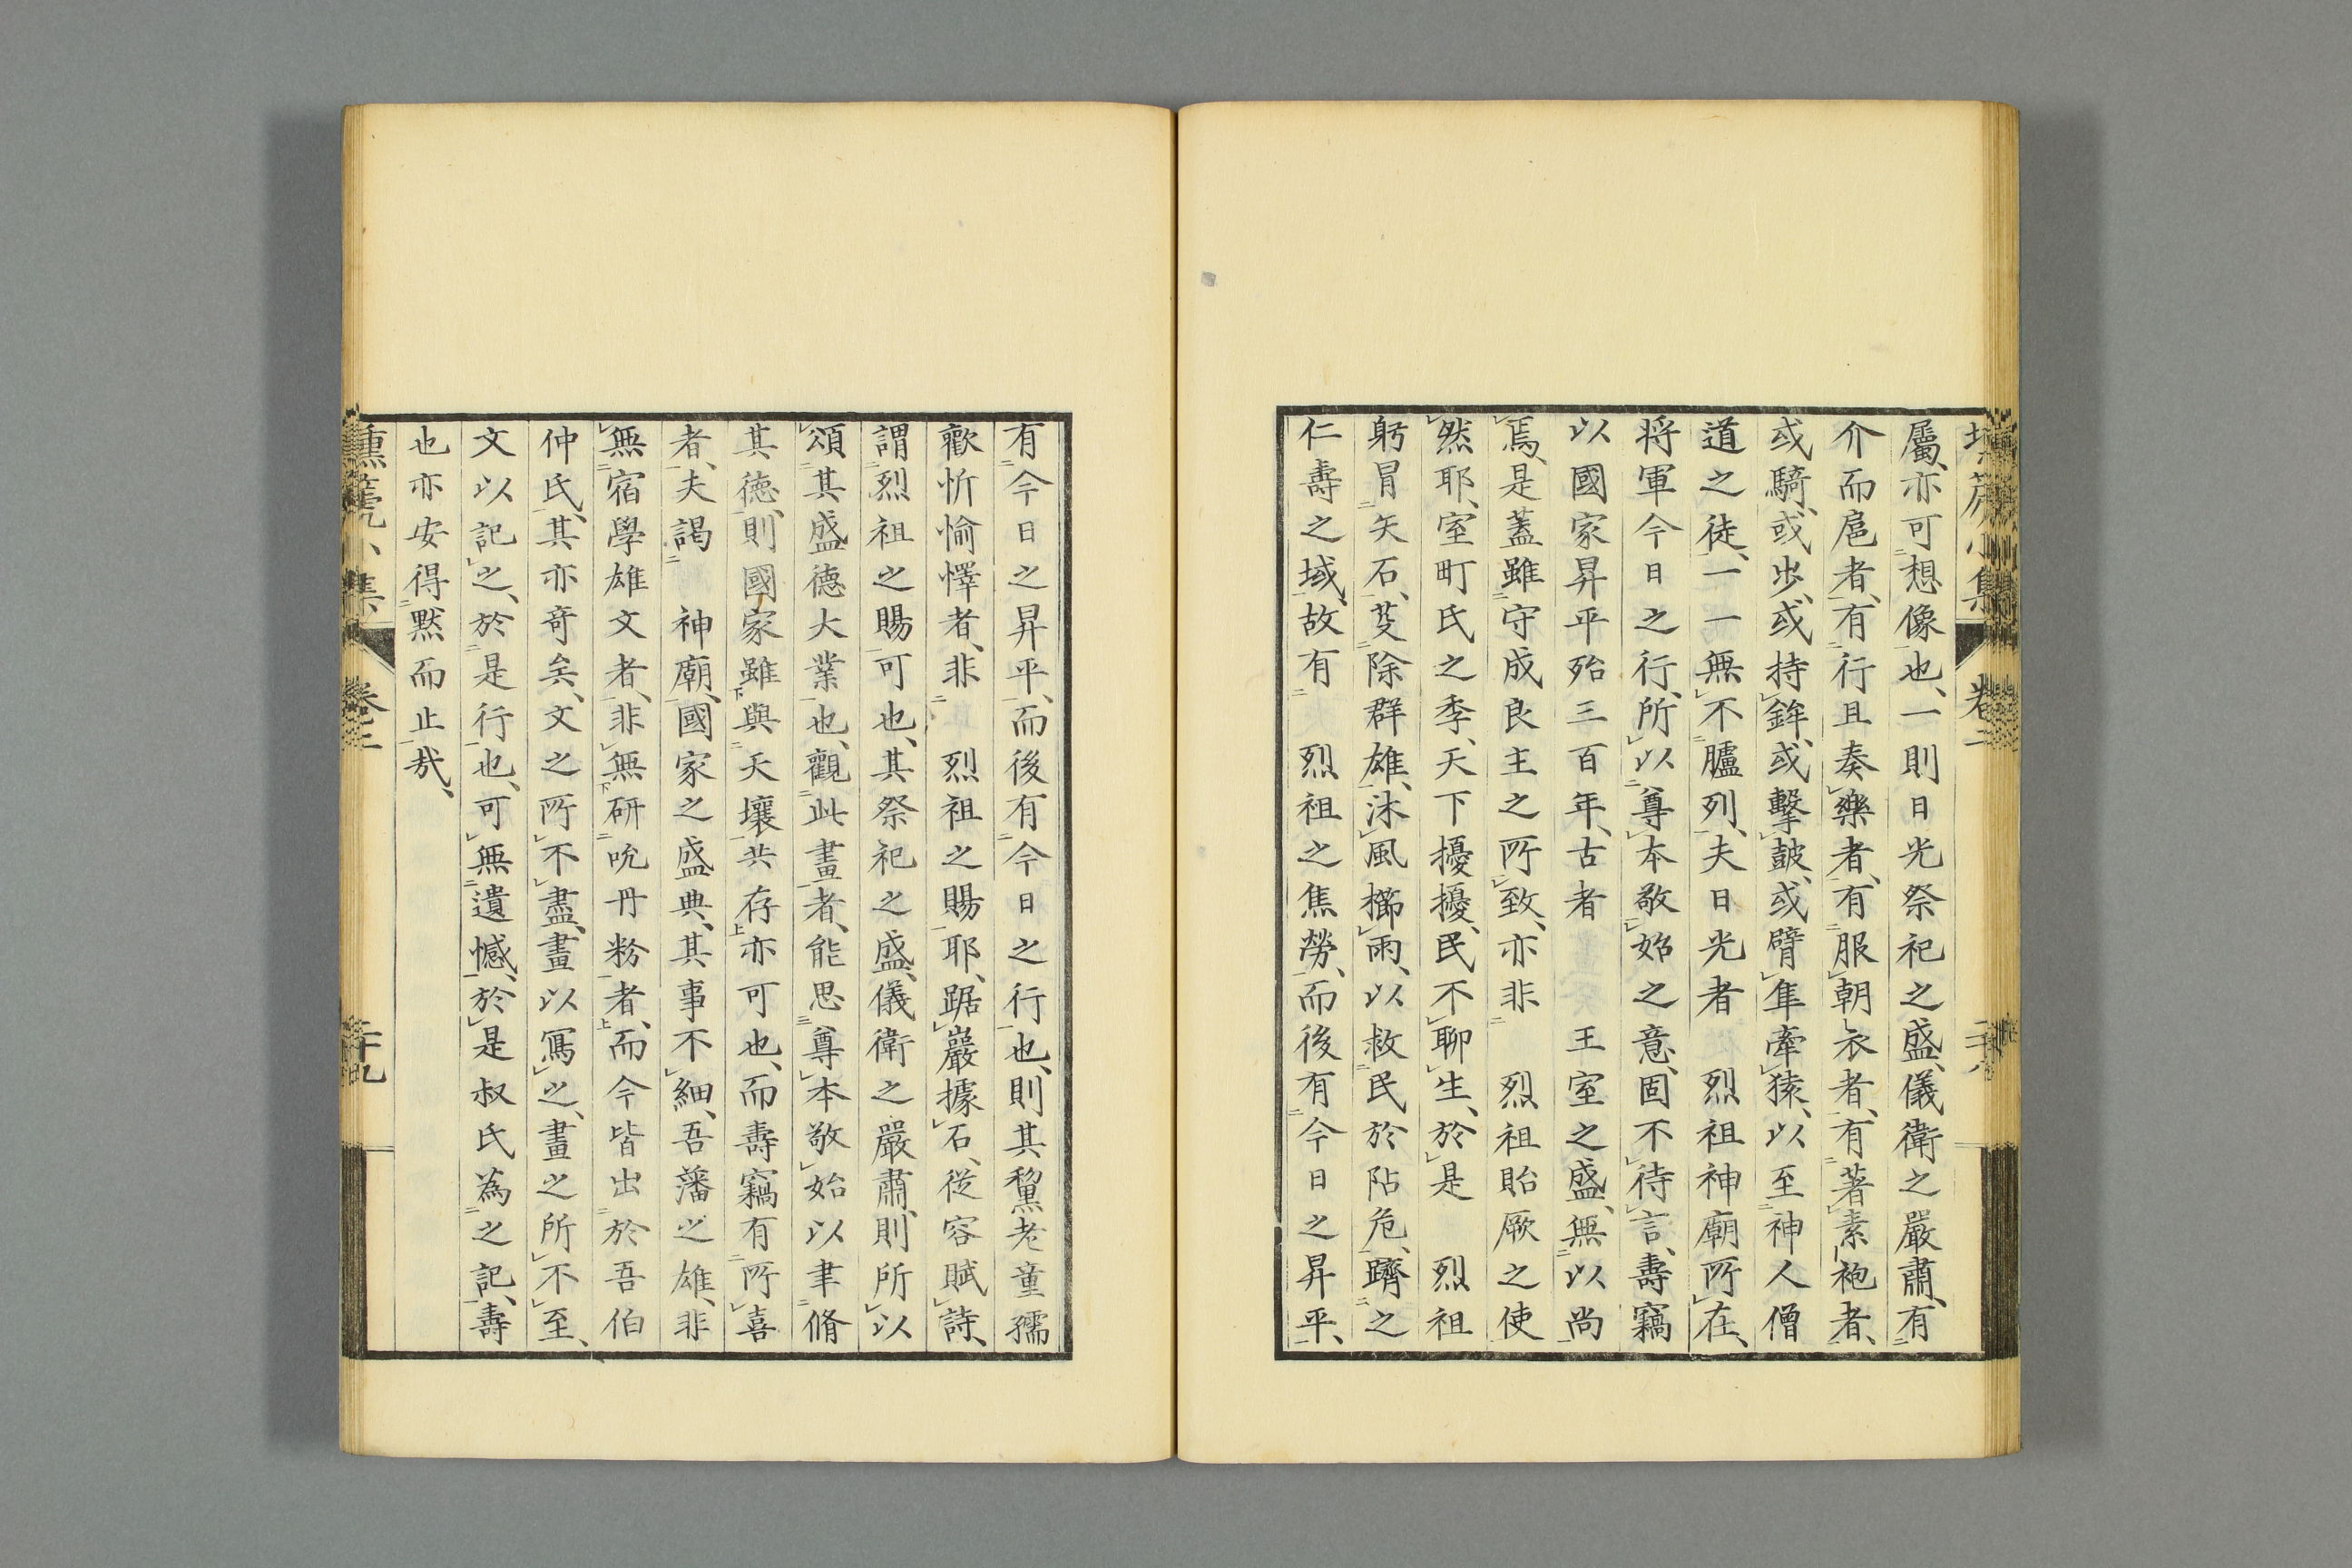 屬、亦可想像也、一則日光祭祀之盛、儀衛之嚴肅、有
介而扈者、有行且奏樂者、有服朝衣者、有著素袍者、
或騎、或步、或持鉾、或擊皷、或臂隼牽猿、以至神人僧
道之徒、一一無不臚列、夫日光者　烈祖神廟所在、
将軍今日之行、所以尊本敬始之意、固不待言、壽竊
以國家昇平殆三百年、古者　王室之盛、無以尚
焉、是蓋雖守成良主之所致、亦非　烈祖貽厥之使
然耶、室町氏之季、天下擾擾、民不聊生、於是　烈祖
躬冒矢石、芟除群雄、沐風櫛雨、以救民於阽危、躋之
仁壽之域、故有　烈祖之焦勞、而後有今日之昇平、
有今日之昇平、而後有今日之行也、則其黧老童孺
歡忻愉懌者、非　烈祖之賜耶、踞巖據石、從容賦詩、
謂烈祖之賜可也、其祭祀之盛、儀衛之嚴肅、則所以
頌其盛德大業也、觀此畫者、能思尊本敬始以聿脩
其德、則國家雖與天壤共存亦可也、而壽竊有所喜
者、夫謁　神廟、國家之盛典、其事不細、吾藩之雄、非
無宿學雄文者、非無研吮丹粉者、而今皆出於吾伯
仲氏、其亦奇矣、文之所不盡、畫以寫之、畫之所不至、
文以記之、於是行也、可無遺憾、於是叔氏為之記、壽
也亦安得默而止哉、